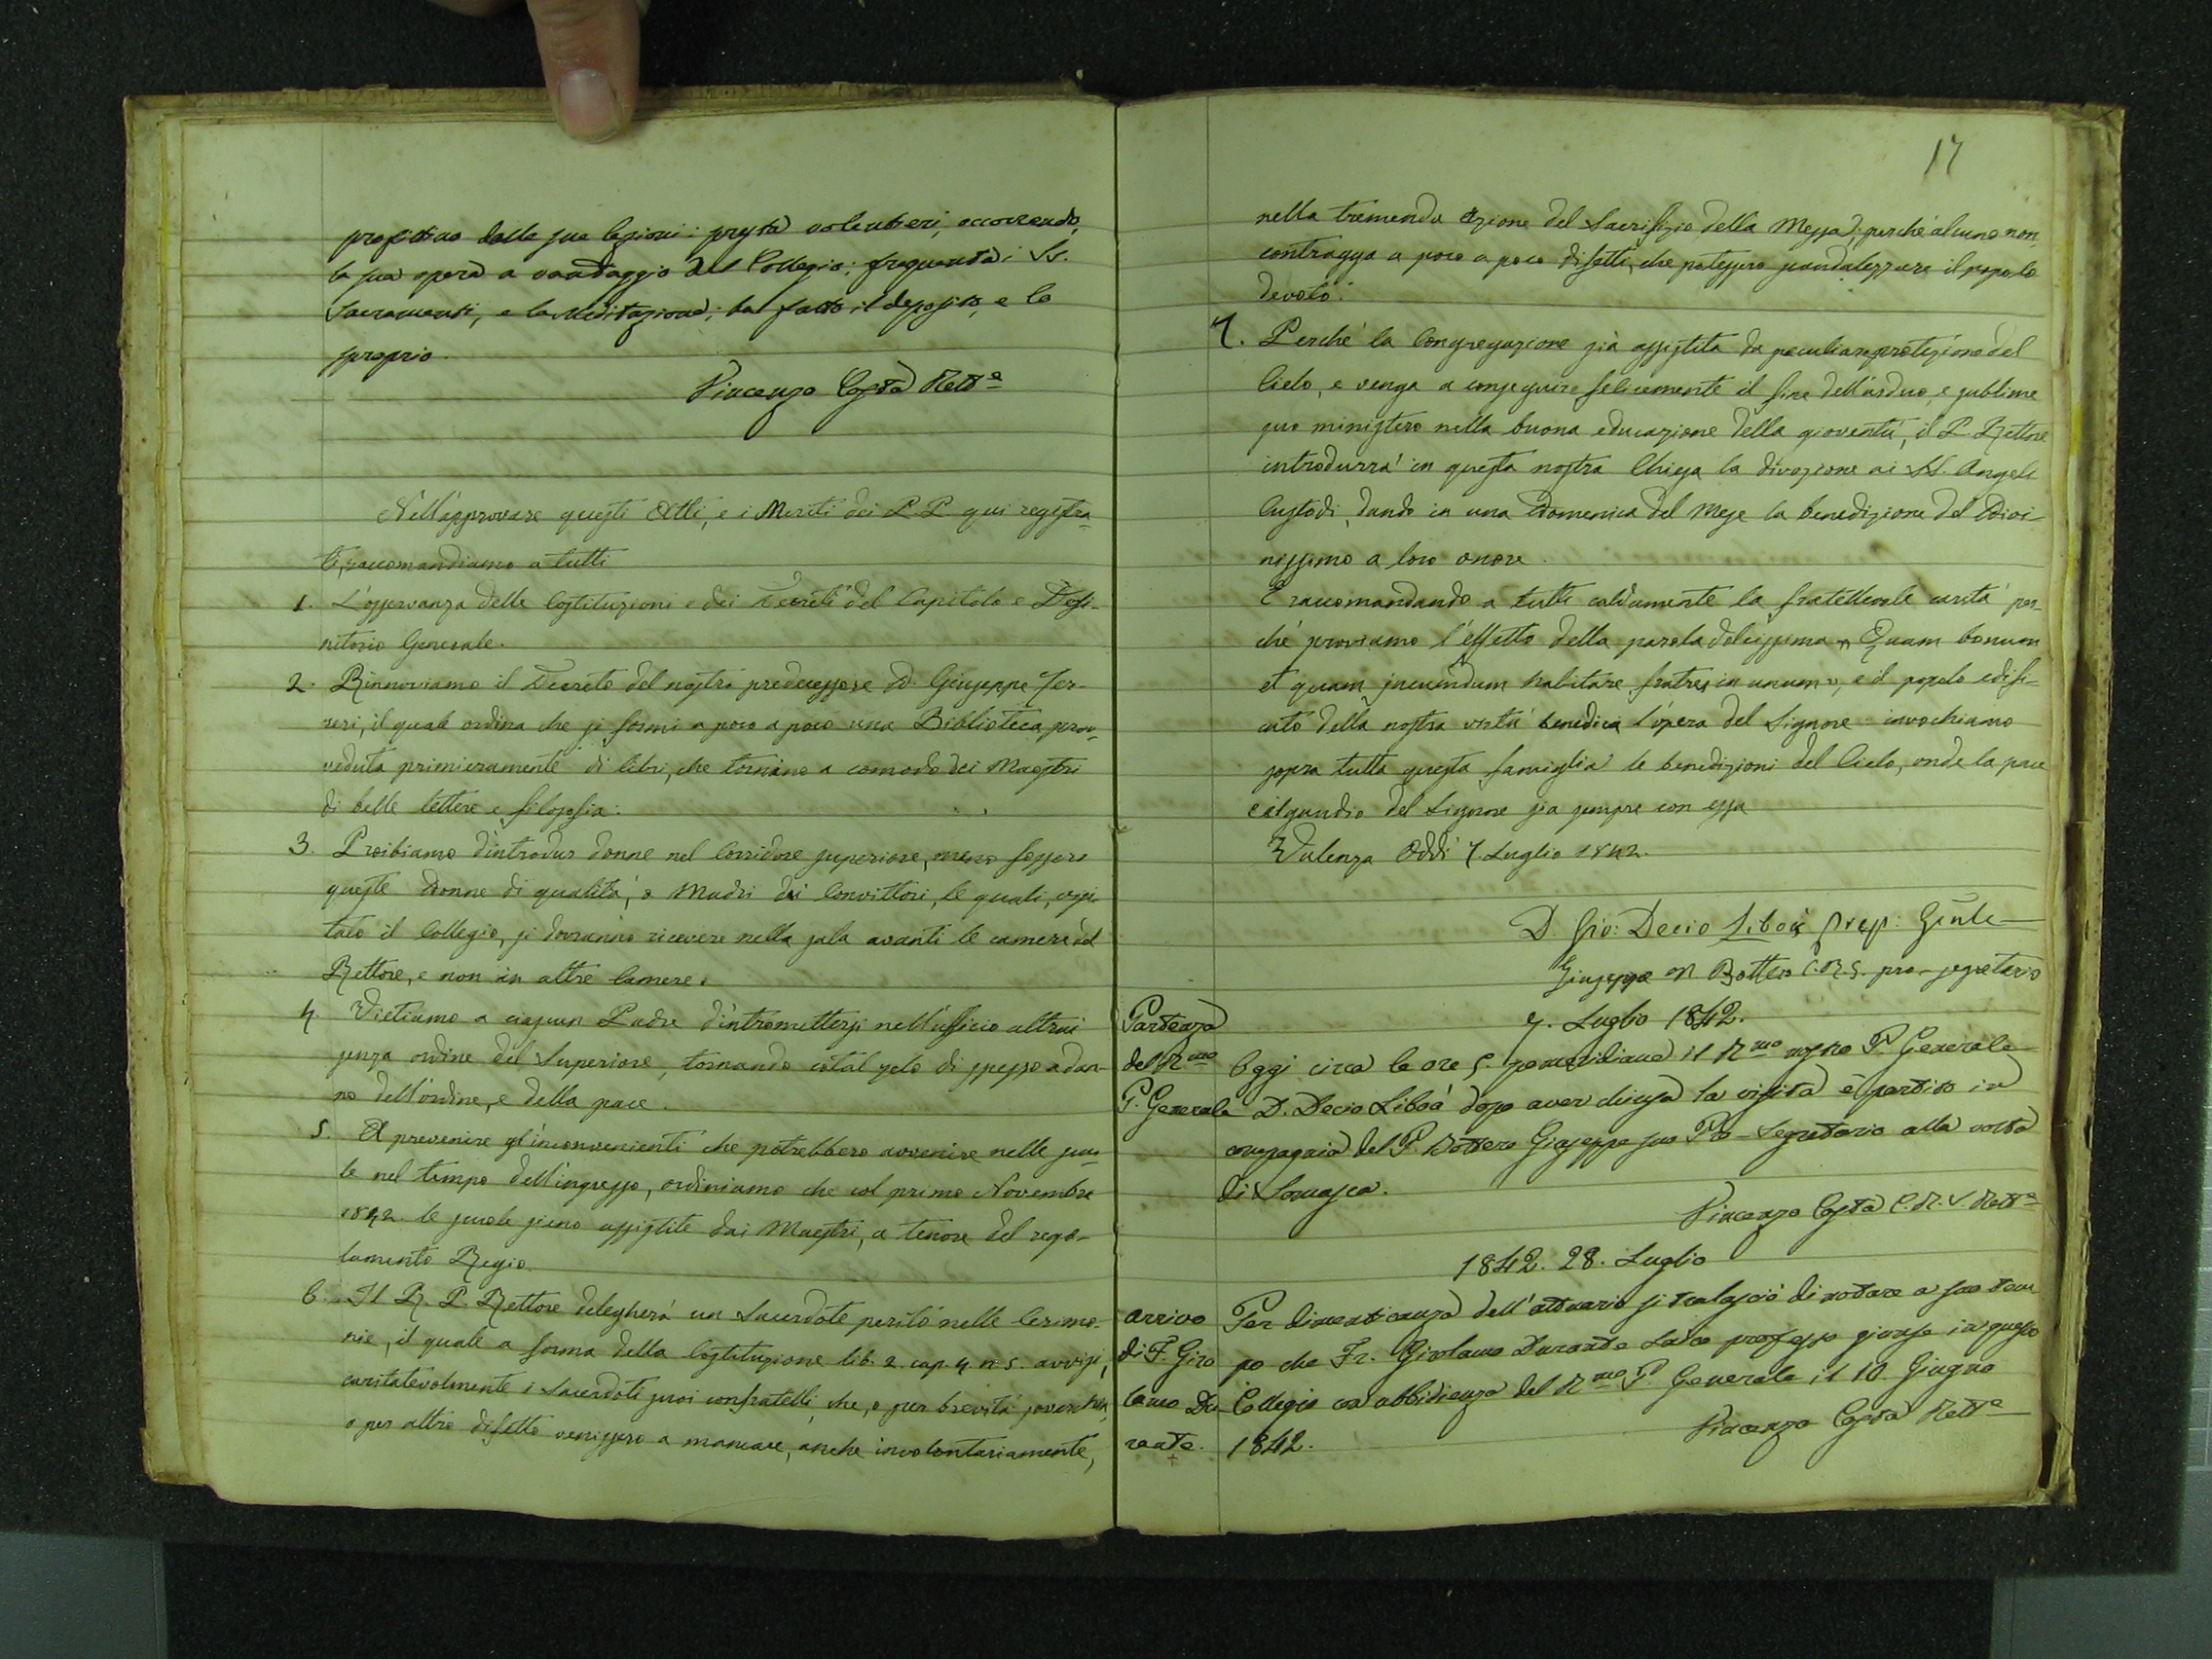 profittino dalle sue lezioni: presta volentieri, occorrendo,
la sua opera a vantaggio del Collegio; frequenta i SS.
Sacramenti, e la Meditazione; ha fatto il deposito, e lo
proprio.
Vincenzo Costa Rett.e
Nell'approvare questi Atti, e i Meriti dei P.P. qui registra-
ti, raccomandiamo a tutti
1. L'osservanza delle Costituzioni e dei Decreti del Capitolo e Defi-
nitorio Generale.
2. Rinnoviamo il Decreto del nostro predecessore D. Giuseppe Fer-
reri, il quale ordina che si formi a poco a poco una Biblioteca prov-
veduta primieramente di libri, che tornino a comodo dei Maestri
di belle lettere e filosofia.
3. Proibiamo d'introdur donne nel Corridore superiore, meno fossero
queste Donne di qualità, o Madri dei Convittori, le quali, visi-
tato il Collegio, si dovranno ricevere nella sala avanti le camere del
Rettore, e non in altre Camere.
4. Vietiamo a ciascun Padre d'intromettersi nell'ufficio altrui
senza ordine del Superiore, tornando cotal zelo di spesso a dan-
no dell'ordine, e della pace.
5. A prevenire gl'inconvenienti che potrebbero avvenire nelle scuo-
le nel tempo dell'ingresso, ordiniamo che col primo Novembre
1842. le scuole sieno assistite dai Maestri, a tenore del rego-
lamento Regio.
6. Il R. P. Rettore delegherà un Sacerdote perito nelle Cerimo-
nie, il quale a forma della Costituzione lib. 2. cap. 4. n. 5. avvisi,
caritatevolmente i Sacerdoti suoi confratelli, che, o per brevità soverchia,
o per altro difetto venissero a mancare, anche involontariamente,
17
nella tremenda azione del Sacrifizio della Messa; perchè alcuno non
contragga a poco a poco difetti, che potessero scandalezzare il popolo
devoto.
7. Perchè la Congregazione sia assistita da peculiare protezione del
Cielo, e venga a conseguire felicemente il fine dell'arduo, e sublime
suo ministero nella buona educazione della gioventù, il P. Rettore
introdurrà in questa nostra Chiesa la divozione ai SS. Angeli
Custodi, dando in una Domenica del Mese la benedizione del Divi-
nissimo a loro onore.
E raccomandando a tutti caldamente la fratellevole carità per-
chè proviamo l'effetto della parola dolcissima „ Quam bonum
et quam jucundum habitare fratres in unum „, e il popolo edifi-
cato della nostra virtù benedica l'opera del Signore invochiamo
sopra tutta questa famiglia le benedizioni del Cielo, onde la pace
e il gaudio del Signore sia sempre con essa
Valenza Addì 7. Luglio 1842.
D. Gio: Decio Libois Prep: Gñle
Giuseppe M Bottero C.R.S. pro-segretario
7. Luglio 1842.
Partenza
del R.mo
P. Generale
Oggi circa le ore 5. pomeridiane il R.mo nostro P. Generale
D. Decio Liboà dopo aver chiusa la visita è partito in
compagnia del P. Bottero Giuseppe suo Pro-Segretario alla volta
di Somasca.
Vincenzo Costa C.R.S. Rett.e
1842. 28. Luglio
arrivo
di F. Giro
lamo Du
rante.
Per dimenticanza dell'attuario si tralasciò di notare a suo tem
po che Fr. Girolamo Durante Laico professo giunse in questo
Collegio con obbidienza del R.mo P. Generale il 10. Giugno
1842.
Vincenzo Costa Rett.e